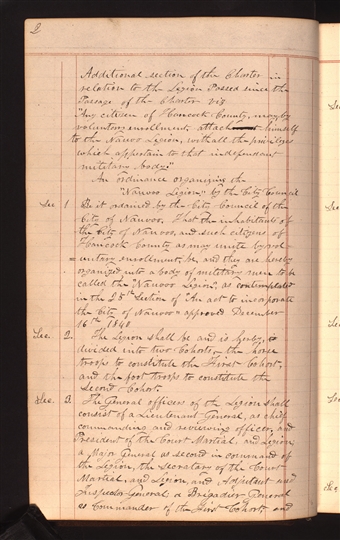 2
Additional section of the Charter in
relation to the Legion Passed since the
Passage of the Charter viz
"Any citizen of Hancock County, may by
voluntary enrollment, attach himself
to the Nauvoo Legion, with all the privileges
which appertain to that independant
military body."
An ordinance organizing the
"Nauvoo Legion," by the City Council
Sec 1. Be it ordained by the City Council of the
City of Nauvoo, That the inhabitants of
the City of Nauvoo, and such citizens of
Hancock County as may unite by vol-
untary enrollment, be, and they are hereby
organized into a body of military men to be
called the "Nauvoo Legion," as contemplated
in the 25th Section of "An act to incoporate
the City of Nauvoo" approved December
16th 1840
Sec. 2. The Legion shall be and is hereby,
divided into two Cohorts, the horse
troops to constitute the First Cohort,
and the foot troops to constitute the
Second Cohort
Sec. 3. The General officers of the Legion shall
consist of a Lieutenant General, as chief
commanding and reviewing officer, and
President of the Court Martial, and Legion;
a Major General as second in command of
the Legion, the Secretary of the Court
Martial, and Legion, and Adjutant and
Inspector General; a Brigadier General
as Commander of the First Cohort; and